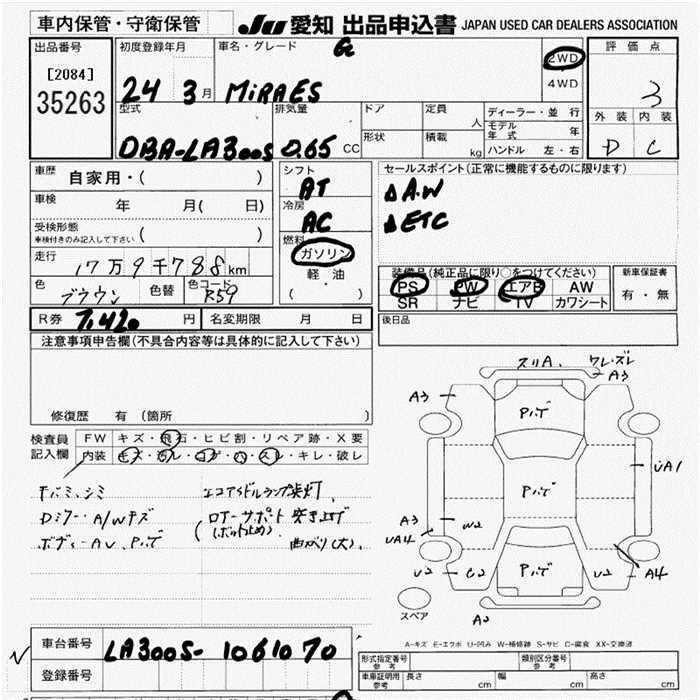 車内保管・守衛保管 JU 愛知 出品申込書 JAPAN USED CAR DEALERS ASSOCIATION
出品番号 初度登録年月 車名・グレード G 2WD 評価点
[2084] 4WD
35263 24 3月 MiRAES 3
型式 排気量 ドア 定員 人 ディーラー・並行 外装 内装
モデル年式 年
DBA-LA300S 0.65 CC 形状 積載 kg ハンドル 左・右 D C
車歴 自家用・( ) シフト AT セールスポイント(正常に機能するものに限ります)
車検 年 月( 日) 冷房 AC △A.W
受検形態 △ETC
車検付きのみ記入して下さい ( ) 燃料
走行 17万9千788km ガソリン 装備品(純正品に限り○をつけてください) 新車保証書
色 ブラウン 色替 色コード R59 軽油 PS PW エアB AW 有・無
( ・ ) SR ナビ TV カワシート
R券 7,420円 名変期限 月 日 後日品
注意事項申告欄(不具合内容等は具体的に記入して下さい)
修復歴 有 (箇所 )
検査員記入欄 FW キズ・飛石・ヒビ割・リペア跡・X要
内装 キズ・汚レ・コゲ・穴・スレ・キレ・破レ
Dミラー・A/Wキズ
ボディーAU、Pハゲ
エコアイドルランプ点灯
ロアーサポート突き上げ
曲がり(大)
スリA. ワレ・ズレ
A3
A3
Pハゲ
Pハゲ
UA1
A3
W2
UA4
U2
C2
Pハゲ
U2
A4
スペア
A-キズ E-エクボ U-凹み W-補修跡 S-サビ C-腐食 XX-交換済
車台番号 LA300S-1061070
登録番号
形式指定番号 参考 類別区分番号 参考
車庫証明用 参考 長さ cm 幅 cm 高さ cm